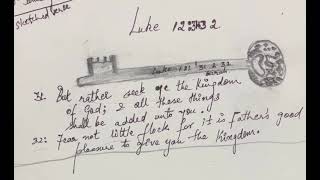 sketched verse
Luke 12:31-32
Luke 12: 31 & 32
Sarah
31. But rather seek ye the Kingdom
of God; & all these things
shall be added unto you.
32: Fear not little flock for it is Father's good
pleasure to give you the Kingdom.